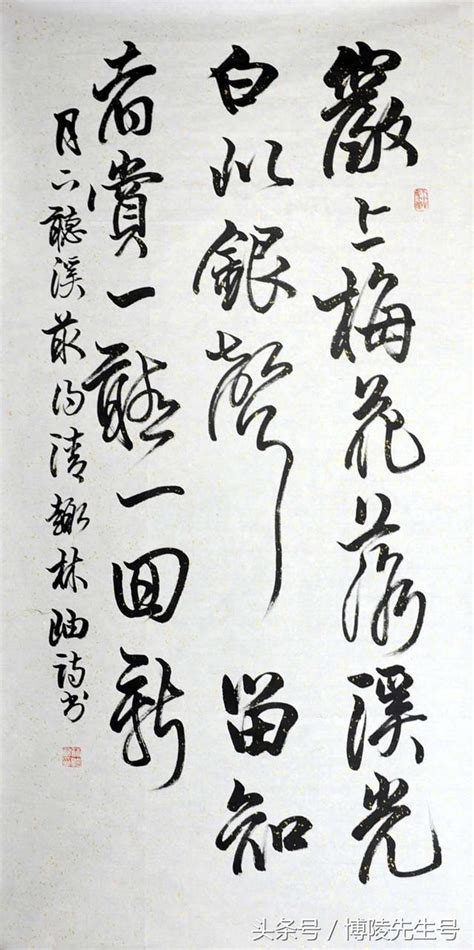 巖上梅花落溪光
白似銀聲留知
者賞一聽一回新
月下聽溪最得清趣林岫詩書
头条号 / 博陵先生号